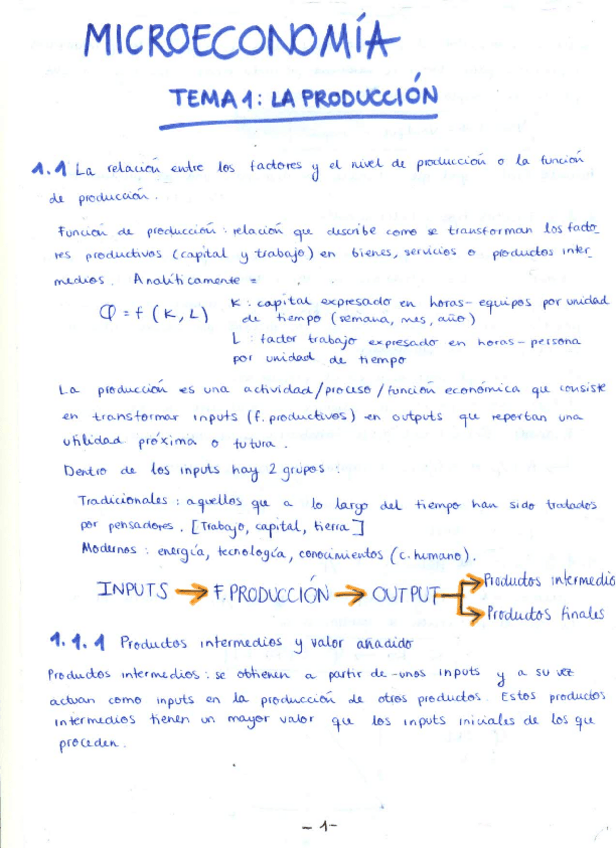 MICROECONOMÍA
TEMA 1: LA PRODUCCIÓN
1.1 La relación entre los factores y el nivel de producción o la función
de producción.
Función de producción: relación que describe como se transforman los facto
res productivos (capital y trabajo) en bienes, servicios o productos inter_
medios. Analíticamente =
Q = f (K, L)
K : capital expresado en horas-equipos por unidad
de tiempo (semana, mes, año)
L : factor trabajo expresado en horas-persona
por unidad de tiempo
La producción es una actividad/proceso/función económica que consiste
en transformar inputs (f. productivos) en outputs que reportan una
utilidad próxima o futura.
Dentro de los inputs hay 2 grupos:
Tradicionales : aquellos que a lo largo del tiempo han sido tratados
por pensadores. [Trabajo, capital, tierra]
Modernos : energía, tecnología, conocimientos (c. humano).
INPUTS → F. PRODUCCIÓN → OUTPUT → Productos intermedio
→ Productos finales
1.1.1 Productos intermedios y valor añadido
Productos intermedios: se obtienen a partir de unos inputs y a su vez
actuan como inputs en la producción de otros productos. Estos productos
intermedios tienen un mayor valor que los inputs iniciales de los que
proceden.
- 1 -